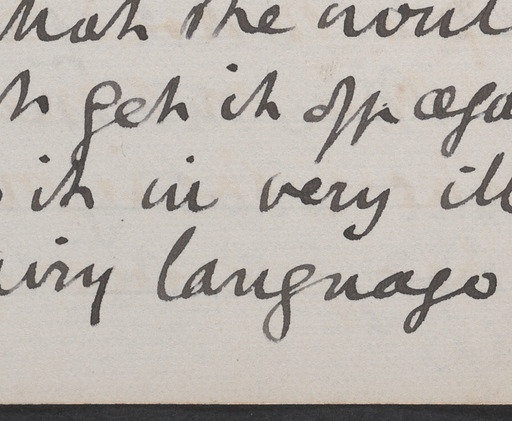 that she woul
get it off aga
it in very ill
airy language